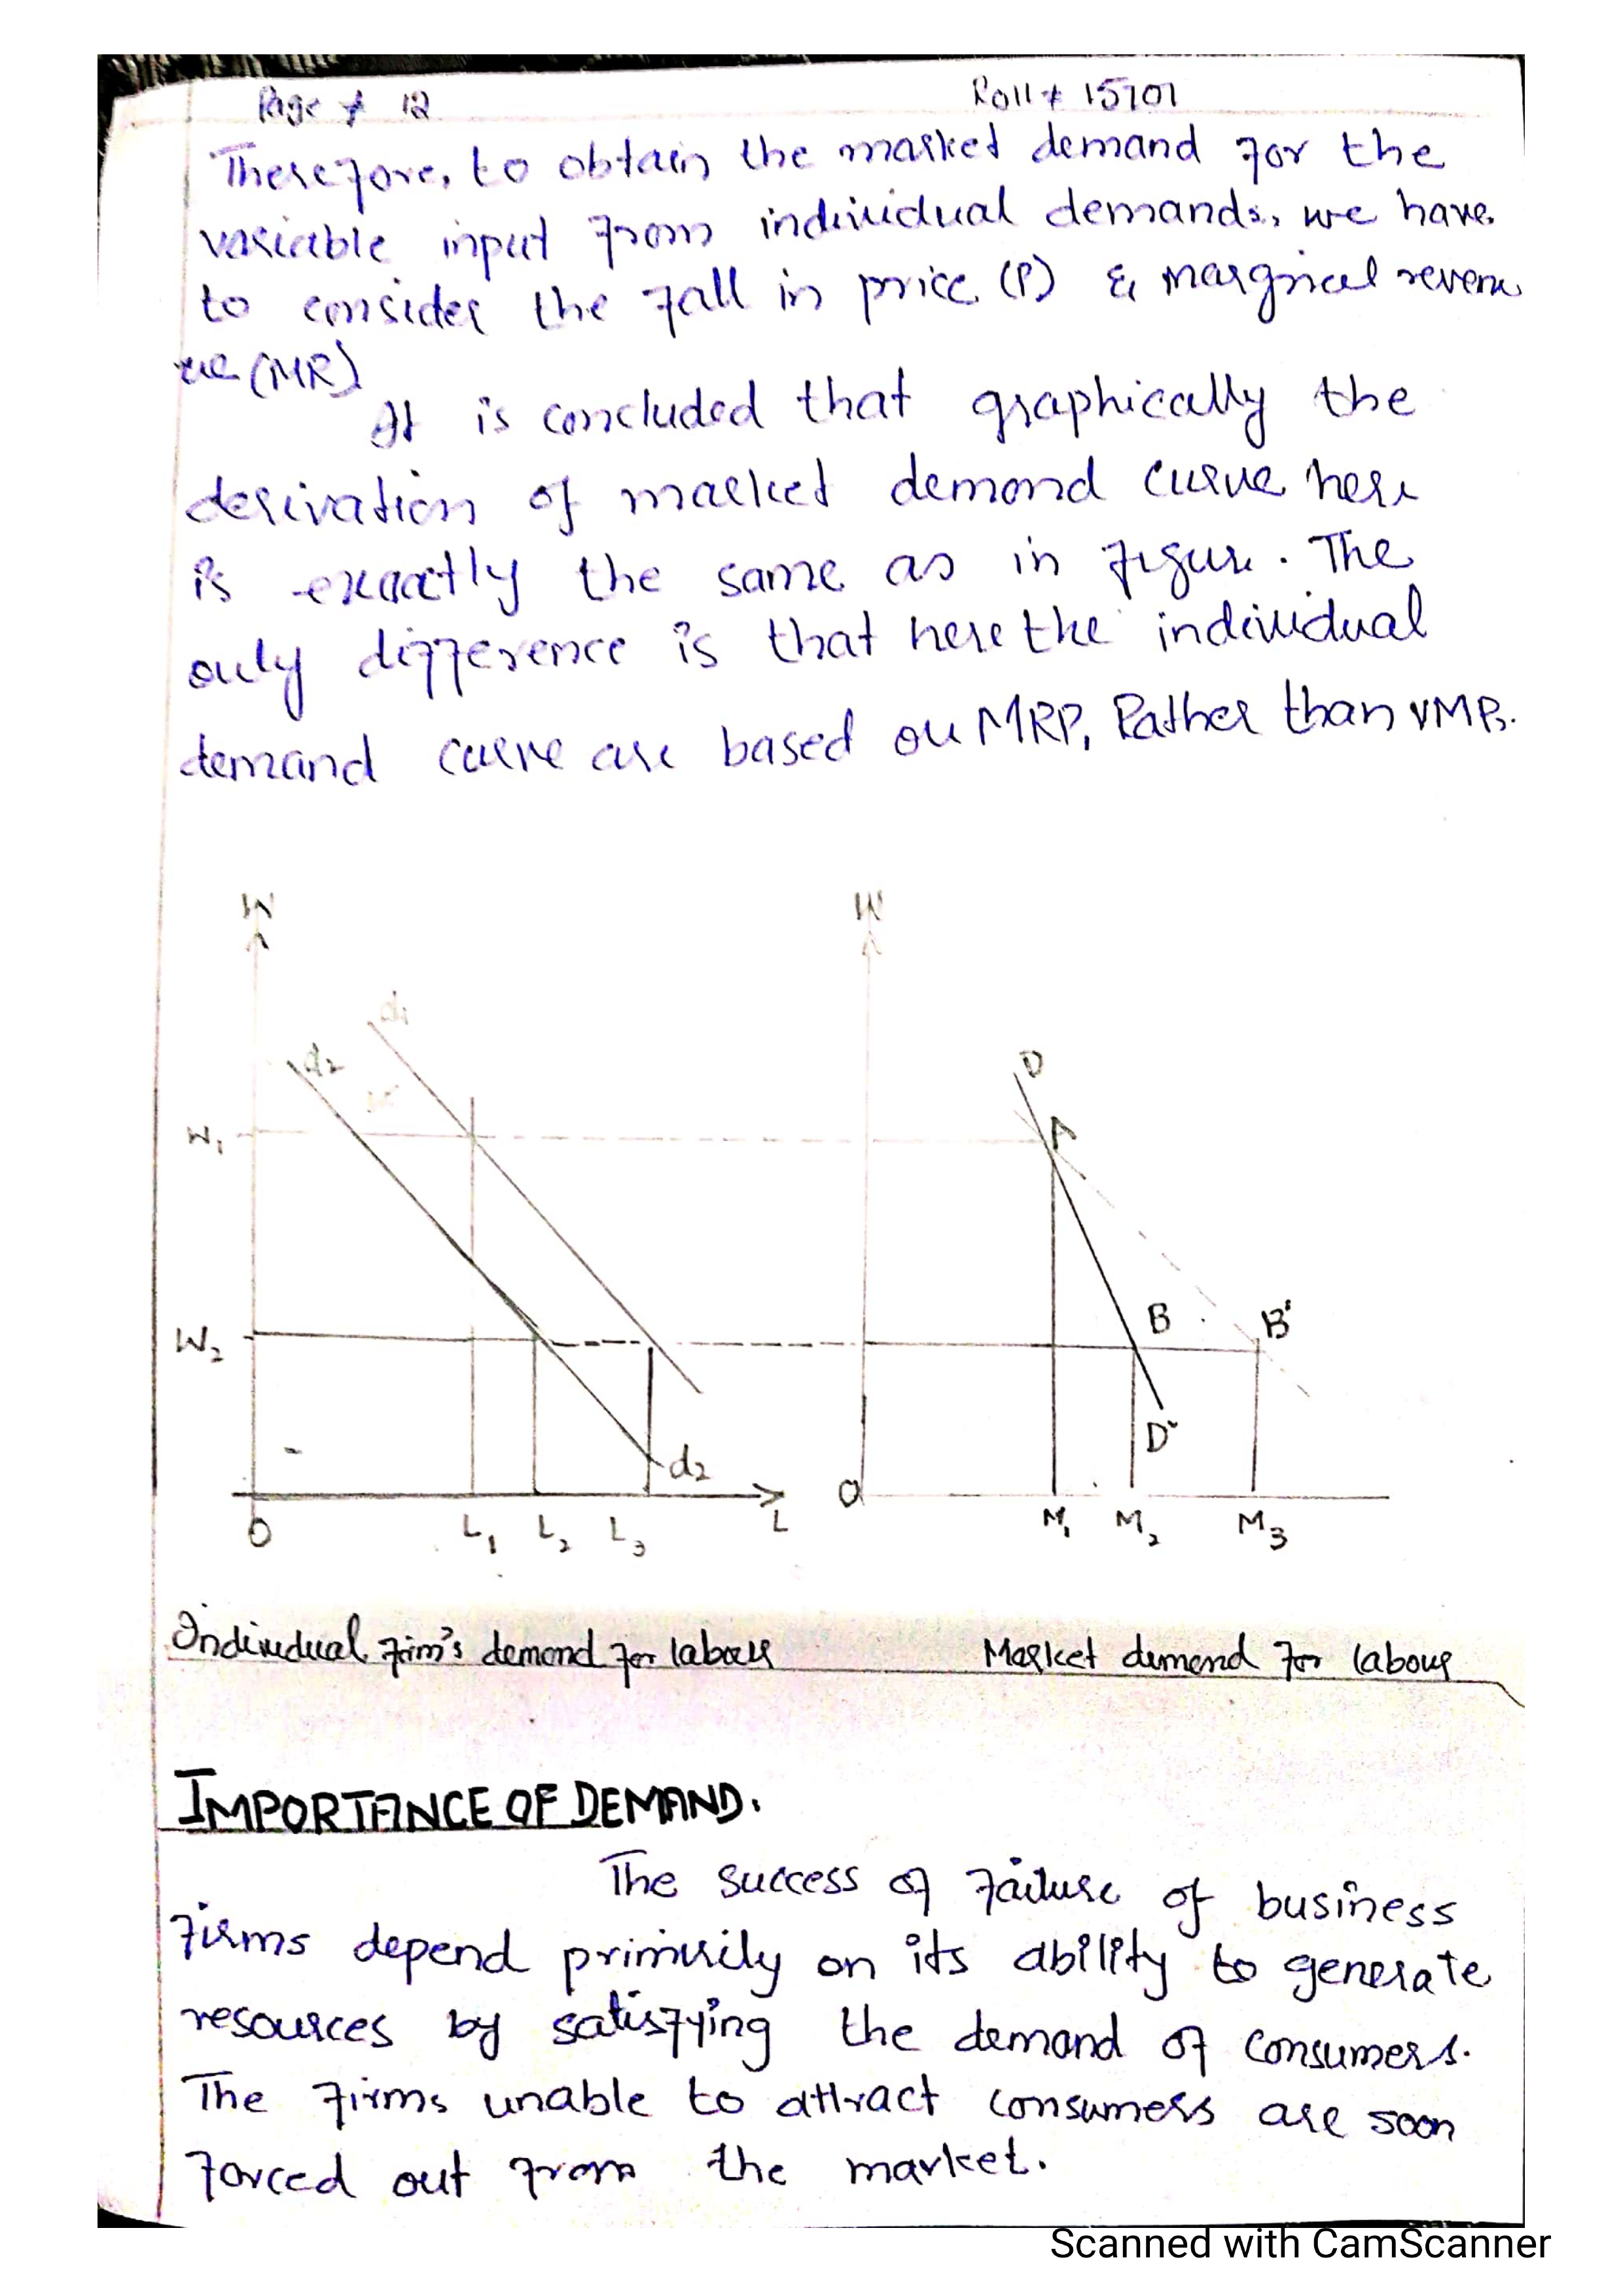 Page # 12
Roll # 15701
Therefore, to obtain the market demand for the
variable input from individual demands, we have
to consider the fall in price (P) & marginal reven
ue (MR)
It is concluded that graphically the
derivation of market demand curve here
is exactly the same as in figure. The
only difference is that here the individual
demand curve are based on MRP, Rather than VMP.
W
W
d1
d2
D
W1
A
B
B'
W2
D'
d2
O
O
L1
L2
L3
L
M1
M2
M3
Individual firm's demand for labour
Market demand for labour
IMPORTANCE OF DEMAND.
The success of failure of business
firms depend primirily on its ability to generate
resources by satisfying the demand of consumers.
The firms unable to attract consumers are soon
forced out from the market.
Scanned with CamScanner